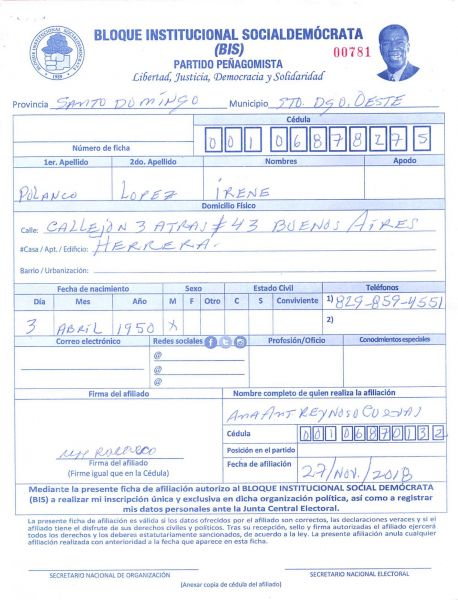 BLOQUE INSTITUCIONAL SOCIALDEMÓCRATA
(BIS)
00781
PARTIDO PEÑAGOMISTA
Libertad, Justicia, Democracia y Solidaridad
Provincia SANTO DOMINGO Municipio STO. DGO. OESTE
Cédula
Número de ficha 001 0687827 5
1er. Apellido 2do. Apellido Nombres Apodo
POLANCO LOPEZ IRENE
Domicilio Físico
Calle: CALLEJON 3 ATRAS # 43 BUENOS AIRES
#Casa / Apt. / Edificio: HERRERA.
Barrio / Urbanización:
Fecha de nacimiento Sexo Estado Civil Teléfonos
Día Mes Año M F Otro C S Conviviente 1) 829-859-4551
3 ABRIL 1950 X 2)
Correo electrónico Redes sociales Profesión/Oficio Conocimientos especiales
@
@
@
Firma del afiliado Nombre completo de quien realiza la afiliación
ANA ANT REYNOSO CUEVAS
Cédula 00106870132
Posición en el partido
Firma del afiliado
(Firme igual que en la Cédula)
Fecha de afiliación 27/NOV./2018
Mediante la presente ficha de afiliación autorizo al BLOQUE INSTITUCIONAL SOCIAL DEMÓCRATA
(BIS) a realizar mi inscripción única y exclusiva en dicha organización política, así como a registrar
mis datos personales ante la Junta Central Electoral.
La presente ficha de afiliación es válida si los datos ofrecidos por el afiliado son correctos, las declaraciones veraces y si el
afiliado tiene el disfrute de sus derechos civiles y políticos. Tras su recepción, sello y firma autorizadas el afiliado ejercerá
todos los derechos y los deberes estatutariamente sancionados, de acuerdo a la ley. La presente afiliación anula cualquier
afiliación realizada con anterioridad a la fecha que aparece en esta ficha.
SECRETARIO NACIONAL DE ORGANIZACIÓN SECRETARIO NACIONAL ELECTORAL
(Anexar copia de cédula del afiliado)